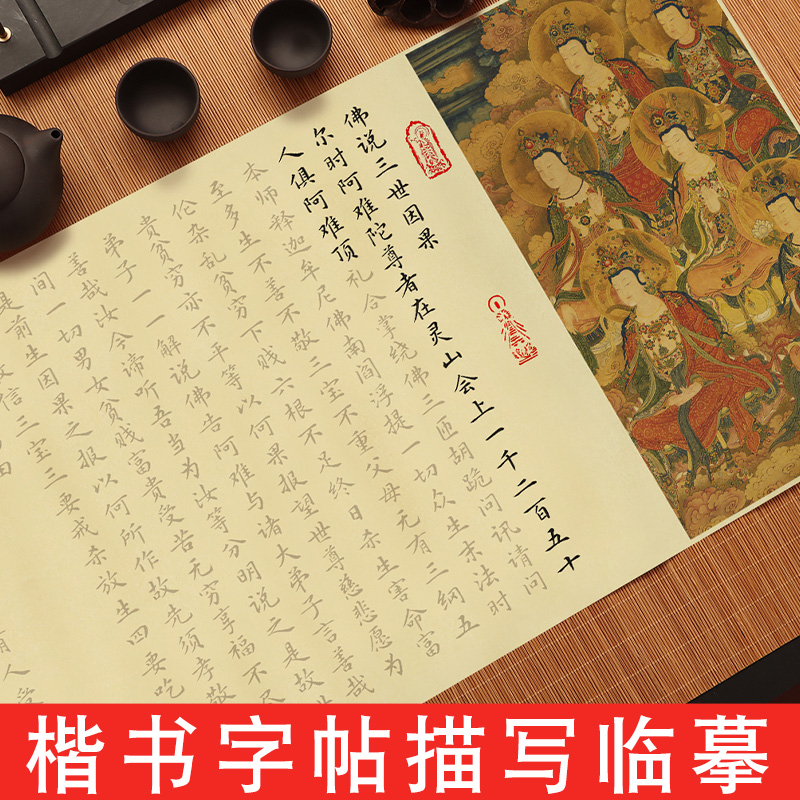 佛说三世因果
尔时阿难陀尊者在灵山会上一千二百五十
人俱阿难顶礼合掌绕佛三匝胡跪问讯请问
本师释迦牟尼佛南阎浮提一切众生末法时
至多生不善不敬三宝不重父母无有三纲五
伦杂乱贫穷下贱六根不足终日杀生害命富
贵贫穷亦不平等以何果报望世尊慈悲愿为
弟子一一解说佛告阿难与诸大弟子言善哉
善哉汝今谛听吾当为汝等分明说之是故世
间一切男女贫贱富贵受苦无穷享福不尽
是前生因果之报以何所作故先须孝敬
信三宝三要戒杀放生四要吃
有人受
楷书字帖描写临摹